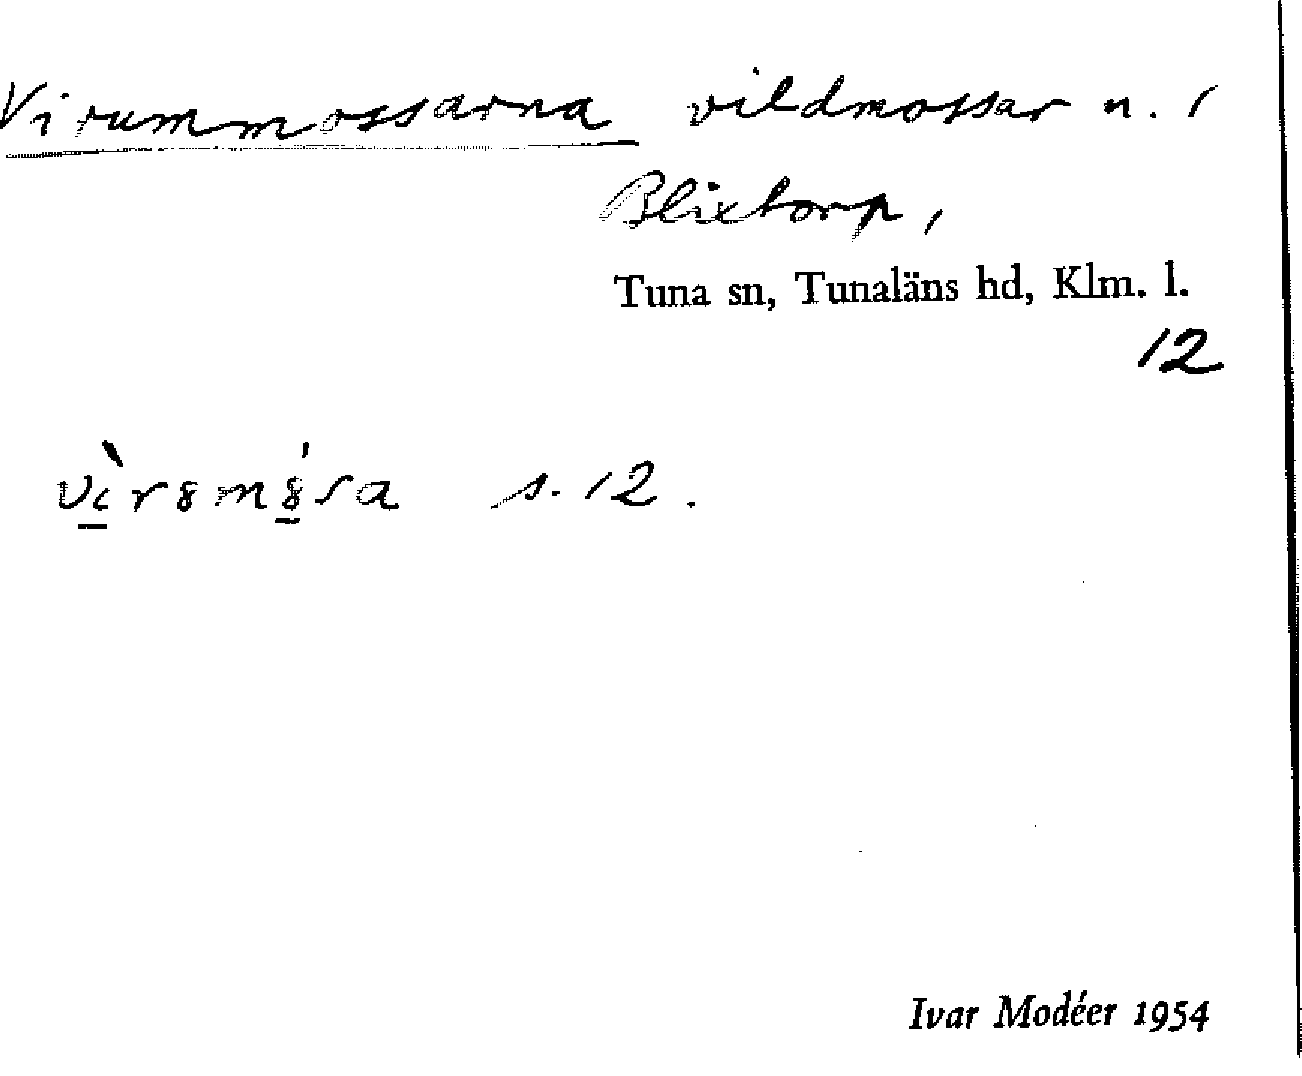 Virummossarna vildmossar n. 1
Blixtorp,
Tuna sn, Tunaläns hd, Klm. l.
12
vì̱r8m8̱́sa s. 12.
Ivar Modéer 1954